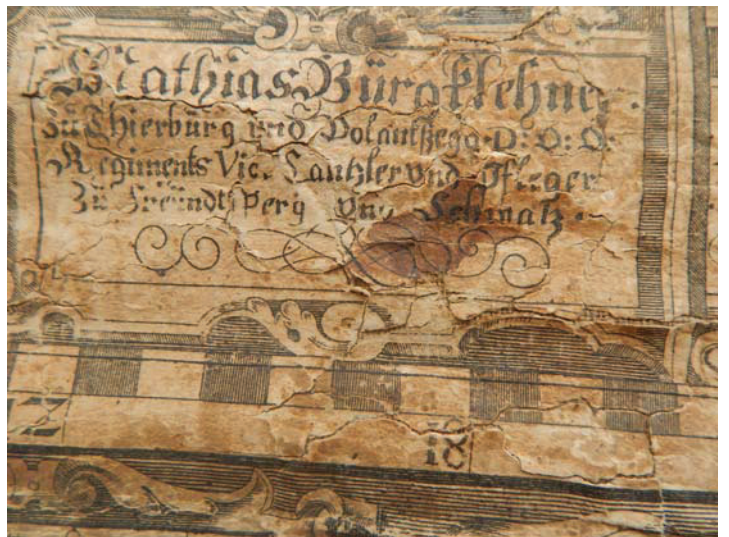 Mathias Bürgklehner.
zu Thierburg und Volantsegg. D: O: O:
Regiments Vic. Cantzler und Pfleger
Zu Freündtsperg und Schwatz.
17
18